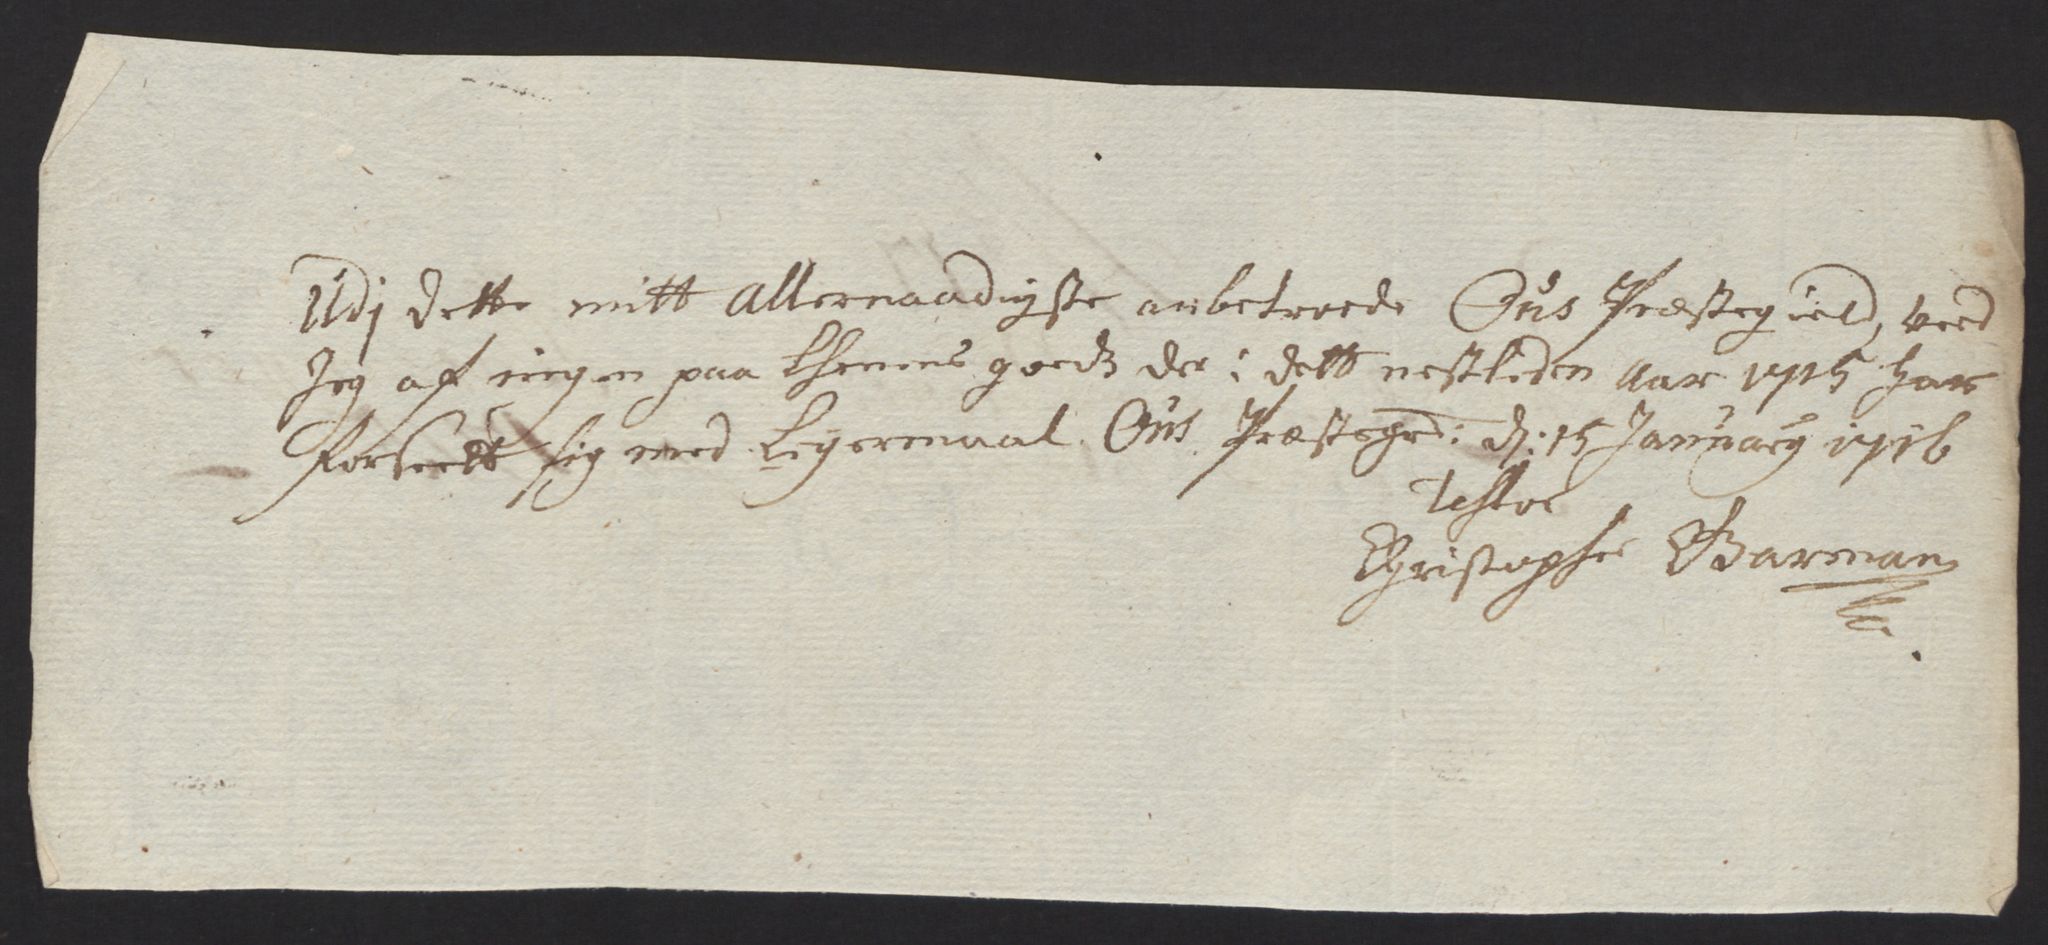 Udj dette mitt allernaadigste anbetroede Ous Præstegield, veed
Jeg af ingen paa Lhenens goedz der i dett nestleden aar 1715 hare
forseedt sig med Leyermaal. Ous Præstegrd: d: 15 January 1716
Testor
Christopher Barman